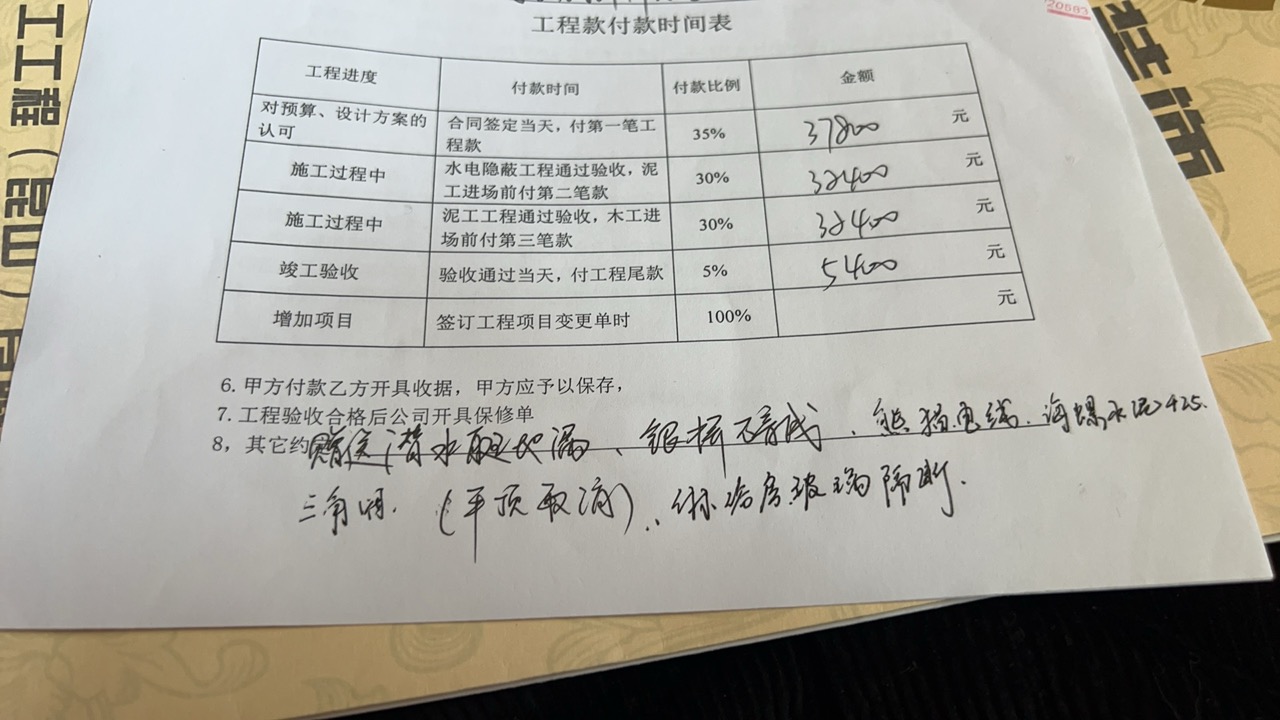 20583
工程款付款时间表
工程进度 付款时间 付款比例 金额
对预算、设计方案的认可 合同签定当天，付第一笔工程款 35% 37800 元
施工过程中 水电隐蔽工程通过验收，泥工进场前付第二笔款 30% 32400 元
施工过程中 泥工工程通过验收，木工进场前付第三笔款 30% 32400 元
竣工验收 验收通过当天，付工程尾款 5% 5400 元
增加项目 签订工程项目变更单时 100% 元
6. 甲方付款乙方开具收据，甲方应予以保存，
7. 工程验收合格后公司开具保修单
8，其它约 赠送潜水艇地漏、银桥石膏线、熊猫电线、海螺水泥425.
三角阀.（平顶取消）. 淋浴房玻璃隔断.
工工程（昆山）